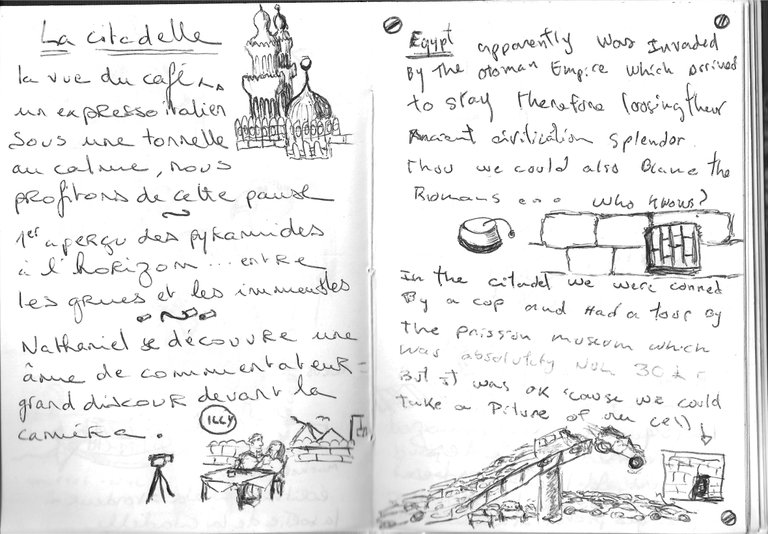 La citadelle
la vue du café,
un expresso italien
sous une tonnelle
au calme, nous
profitons de cette pause
1er aperçu des pyramides
à l'horizon... entre
les grues et les immeubles
Nathaniel se découvre une
âme de commentateur =
grand discour devant la
caméra.
ILLY
Egypt apparently was Invaded
By The otoman Empire which arrived
to stay Therefore loosing their
Ancient civilization splendor.
Thou we could also Blame the
Romans ... who knows?
In the citadel we were conned
By a cop and Had a tour By
The prission museum which
was absolutly
But it was ok 'cause we could
take a Picture of our cell